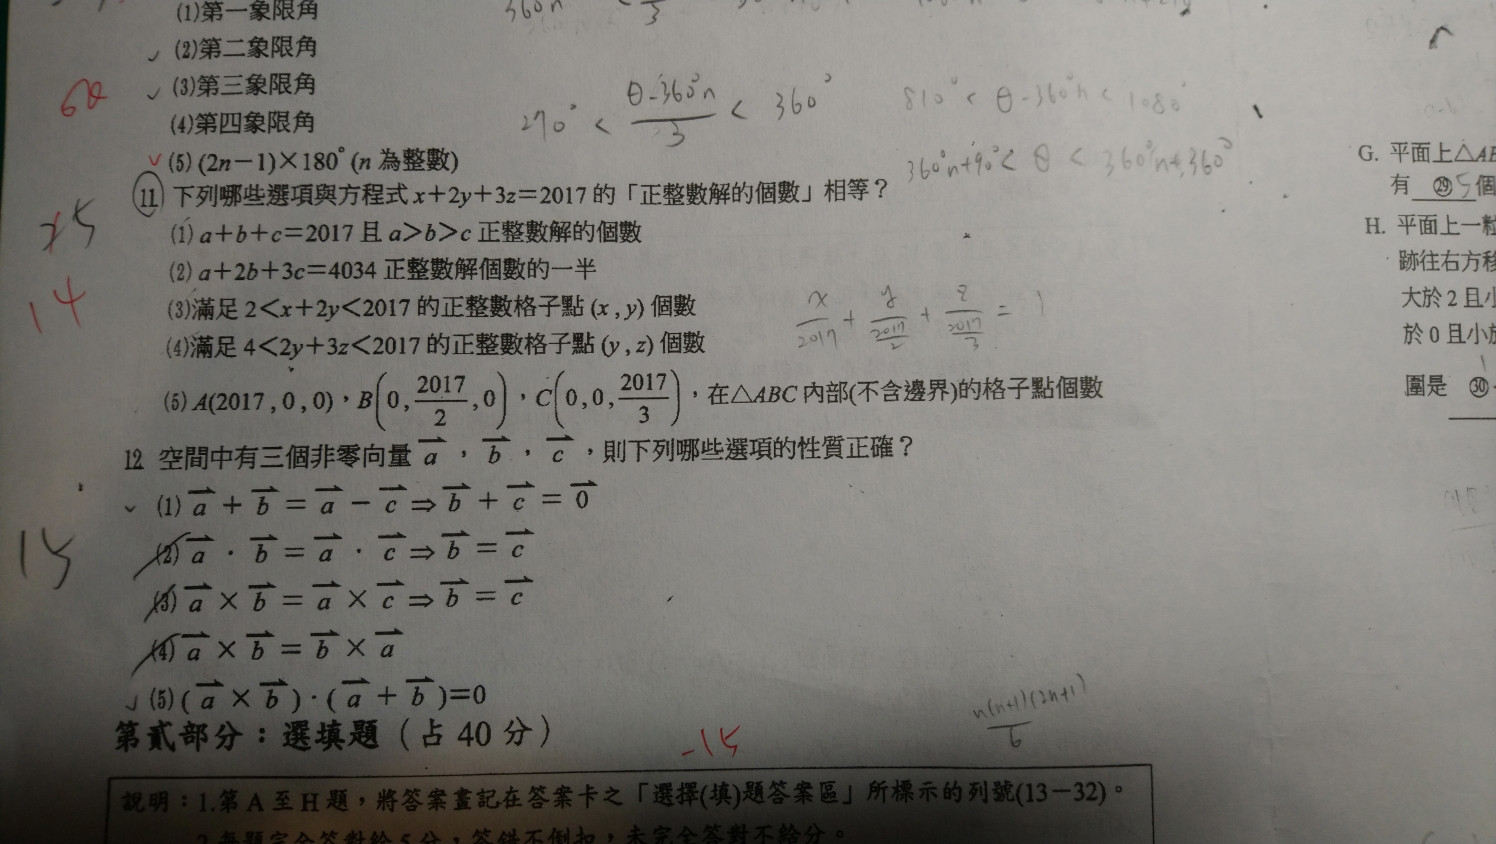 (1)第一象限角
(2)第二象限角
(3)第三象限角
(4)第四象限角
270° < (θ-360°n)/3 < 360°
810° < θ-360°n < 1080°
(5) (2n－1)×180° (n 為整數)
360°n+90° < θ < 360°n+360°
11 下列哪些選項與方程式 x＋2y＋3z＝2017 的「正整數解的個數」相等？
(1) a＋b＋c＝2017 且 a＞b＞c 正整數解的個數
(2) a＋2b＋3c＝4034 正整數解個數的一半
(3)滿足 2＜x＋2y＜2017 的正整數格子點 (x , y) 個數
(4)滿足 4＜2y＋3z＜2017 的正整數格子點 (y , z) 個數
x/2017 + y/(2017/2) + z/(2017/3) = 1
(5) A(2017 , 0 , 0)，B(0, 2017/2 ,0)，C(0,0, 2017/3)，在△ABC 內部(不含邊界)的格子點個數
14
12 空間中有三個非零向量 a⇀，b⇀，c⇀，則下列哪些選項的性質正確？
(1) a⇀ ＋ b⇀ ＝ a⇀ － c⇀ ⇒ b⇀ ＋ c⇀ ＝ 0⇀
(2) a⇀ · b⇀ ＝ a⇀ · c⇀ ⇒ b⇀ ＝ c⇀
(3) a⇀ × b⇀ ＝ a⇀ × c⇀ ⇒ b⇀ ＝ c⇀
(4) a⇀ × b⇀ ＝ b⇀ × a⇀
(5) ( a⇀ × b⇀ )·( a⇀ ＋ b⇀ )＝0
15
n(n+1)(2n+1)/6
第貳部分：選填題（占 40 分）
-15
說明：1.第 A 至 H 題，將答案畫記在答案卡之「選擇(填)題答案區」所標示的列號(13－32)。
2.每題完全答對給 5 分，答錯不倒扣，未完全答對不給分。
G. 平面上△AB
有 ㉙ 5 個
H. 平面上一粒
跡往右方移
大於 2 且小
於 0 且小於
圍是 ㉚